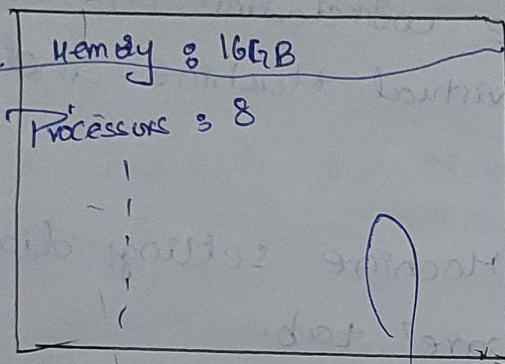 Memory : 16GB
Processors : 8